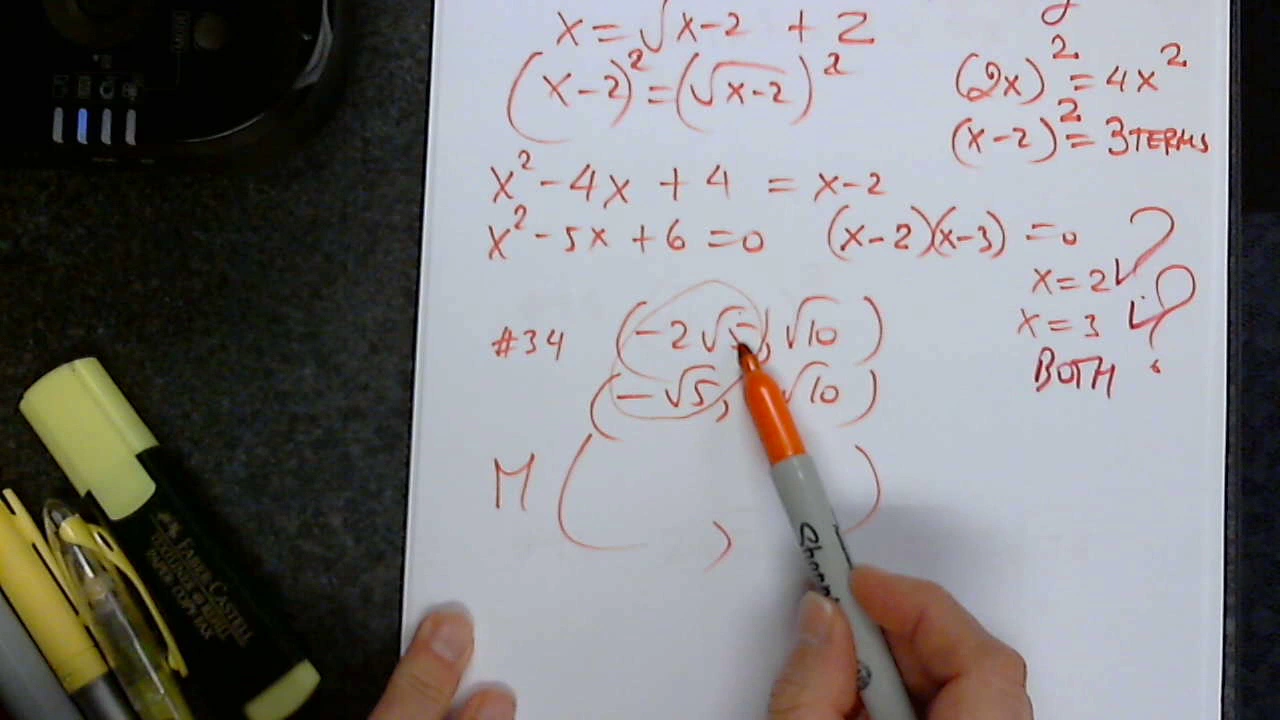 x = √x-2 + 2
(x-2)² = (√x-2)²
(2x)² = 4x²
(x-2)² = 3 TERMS
x² - 4x + 4 = x-2
x² - 5x + 6 = 0 (x-2)(x-3) = 0
x = 2 ✓
x = 3 ✓
BOTH
#34 (-2√5, √10)
(-√5, √10)
M ( , )
FABER-CASTELL